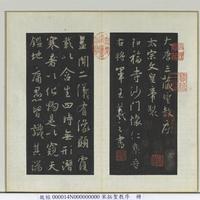 大唐三藏聖教序
太宗文皇帝製
弘福寺沙門懷仁集晉
右將軍王羲之書
蓋聞二儀有像顯覆
載以含生四時無形潛
寒暑以化物是以窺天
鑑地庸愚皆識其端
故帖 000014N000000000 宋拓聖教序 冊